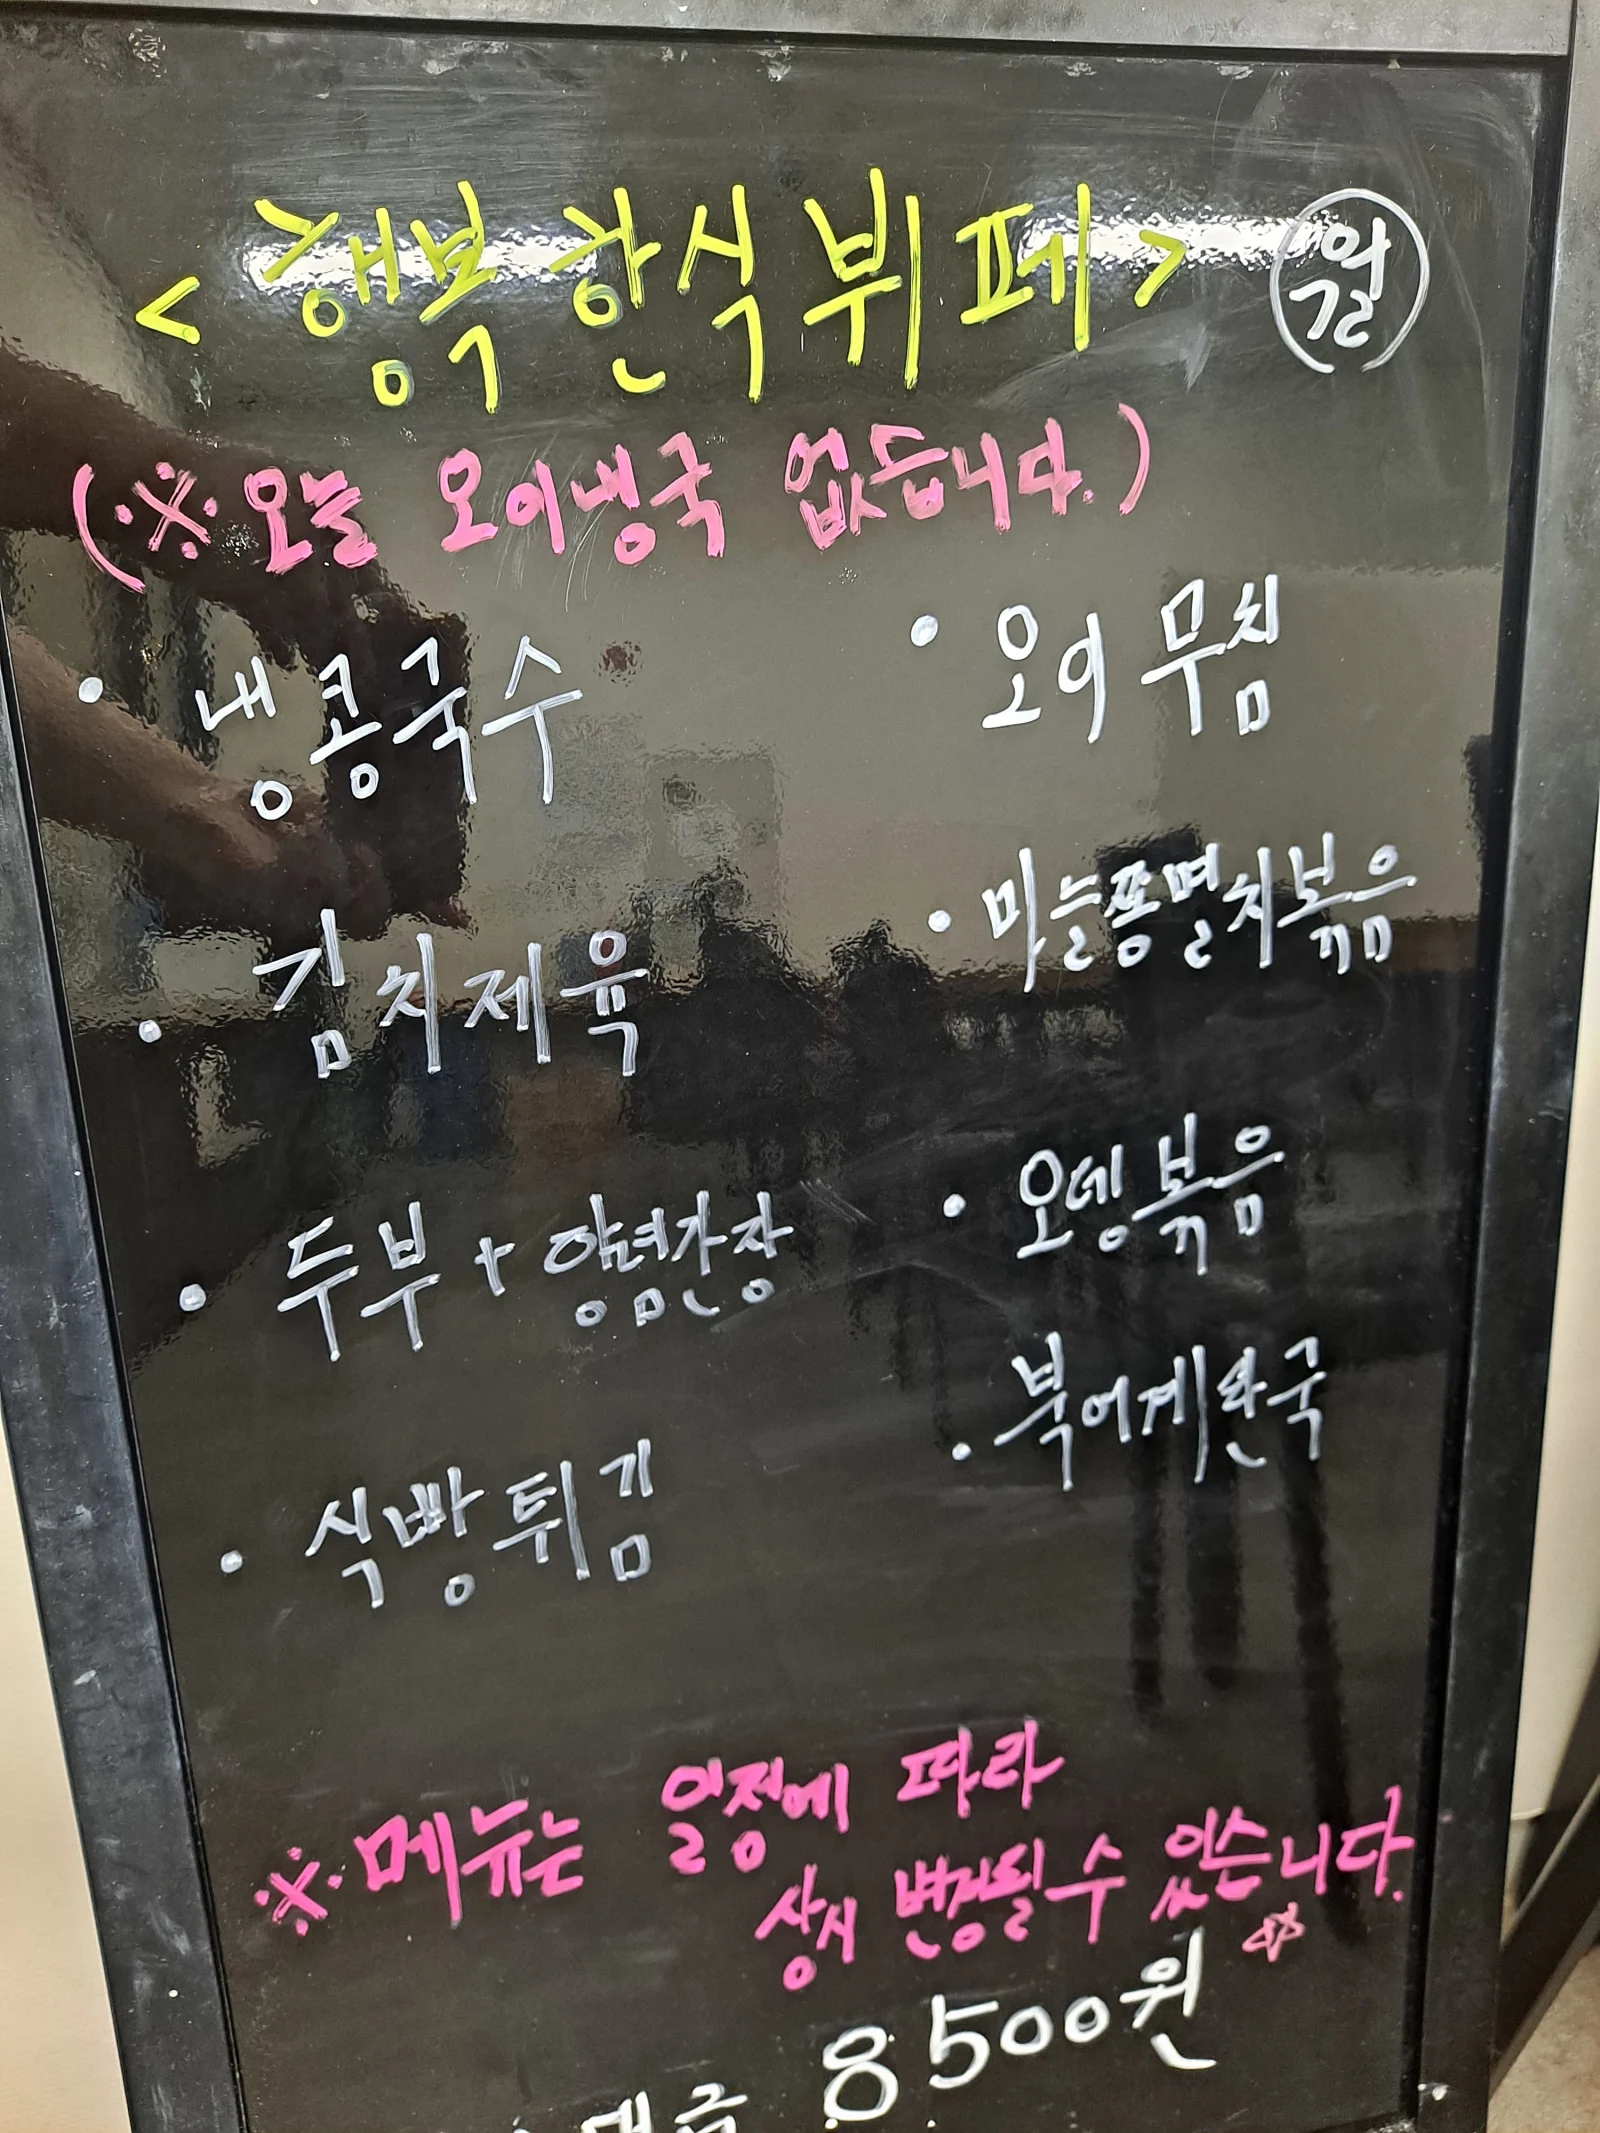 <행복 한식 뷔페> 월
(※오늘 오이냉국 없습니다.)
• 냉콩국수
• 김치제육
• 두부 + 양념간장
• 식빵튀김
• 오이무침
• 마늘쫑멸치볶음
• 오뎅볶음
• 북어계란국
※메뉴는 일정에 따라
상시 변경될 수 있습니다.
8500원